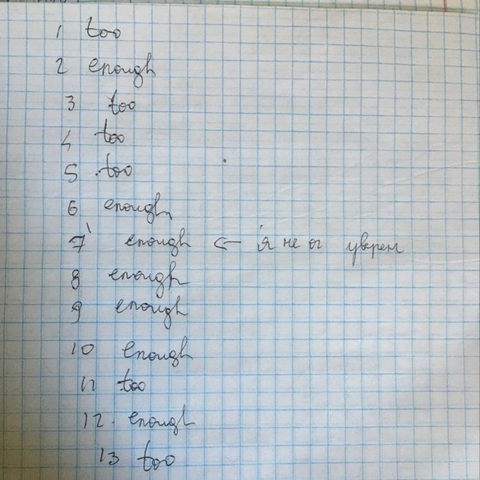 1 too
2 enough
3 too
4 too
5 too
6 enough
7 enough ← я не уверен
8 enough
9 enough
10 enough
11 too
12. enough
13 too